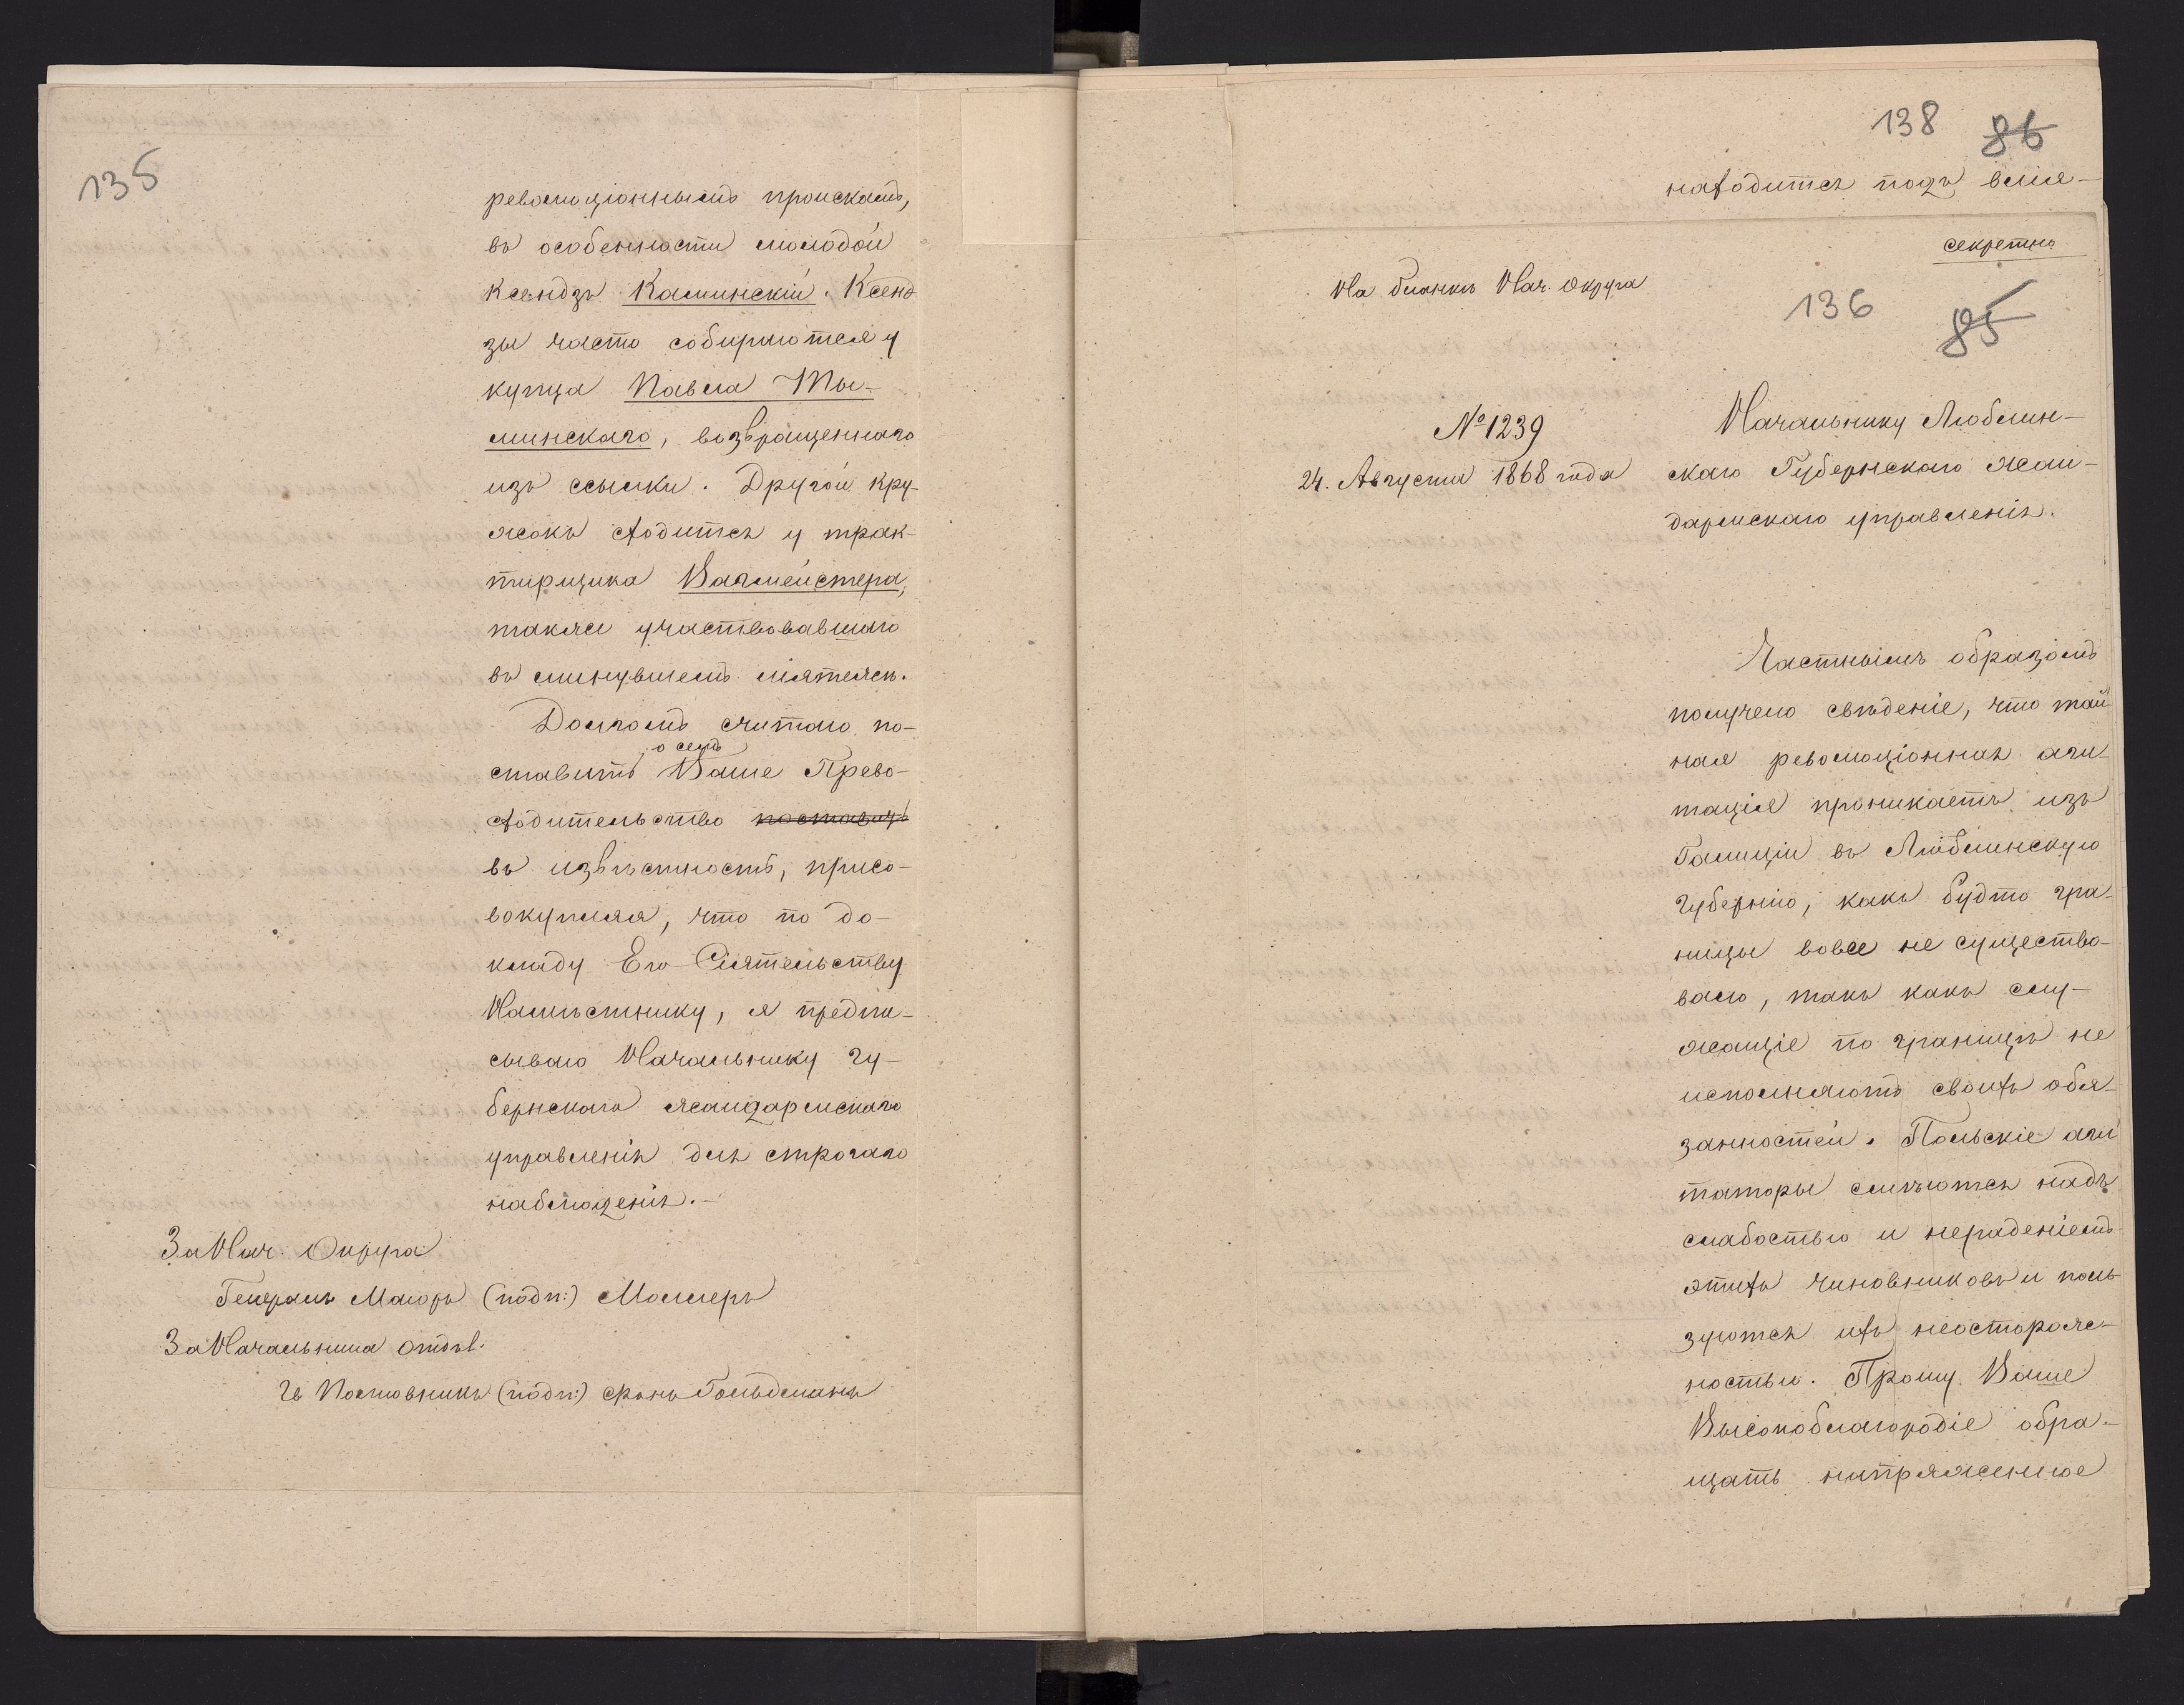 135
революціоннымъ проискамъ,
въ особенности молодой
Ксендзъ Каминскій. Ксенд
зы часто собираются у
купца Павла Ты-
минскаго, возвращеннаго
изъ ссылки. Другой кру-
жокъ сходится у трак-
тирщика Вагмейстера,
также участвовавшаго
въ минувшемъ мятежѣ.
Долгомъ считаю по-
о семъ
ставить Ваше Прево-
сходительство поставить
въ извѣстность, присо-
вокупляя, что по до-
кладу Его Сіятельству
Намѣстнику, я предпи-
сываю Начальнику гу-
бернскаго жандармскаго
управленія для строгаго
наблюденія.-
За Нач. Округа
Генералъ Маіоръ (подп:) Моллеръ
За Начальника Отдѣл.
Подполковникъ (подп:) фонъ Гольдманъ
138 86
находится подъ влія-
секретно
На бланкѣ Нач. Округа
136 85
№ 1239
24. Августа 1868 года
Начальнику Люблин-
скаго Губернскаго жан-
дармскаго управленія.
Частнымъ образомъ
получено свѣденіе, что тай
ная революціонная аги-
тація проникаетъ изъ
Галиціи въ Люблинскую
губернію, какъ будто гра-
ницы вовсе не существо-
вало, такъ какъ слу-
жащіе по границѣ не
исполняютъ своихъ обя-
занностей. Польскіе аги
таторы смѣются надъ
слабостью и нерадѣніемъ
этихъ чиновниковъ и поль
зуются ихъ неосторож-
ностью. Прошу Ваше
Высокоблагородіе обра-
щать напряженное